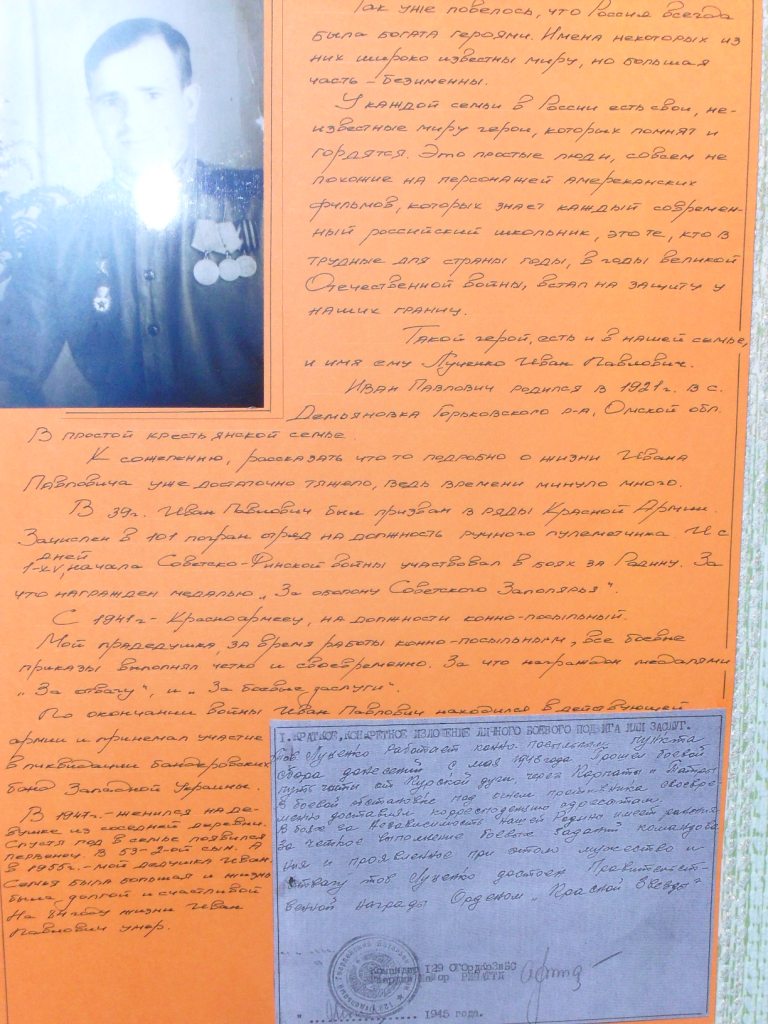 Так уже повелось, что Россия всегда
была богата героями. Имена некоторых из
них широко известны миру, но большая
часть – безименны.
У каждой семьи в России есть свои, не-
известные миру герои, которых помнят и
гордятся. Это простые люди, совсем не
похожие на персонажей американских
фильмов, которых знает каждый современ-
ный российский школьник, это те, кто в
трудные для страны годы, в годы великой
Отечественной войны, встал на защиту у
наших границ.
Такой герой, есть и в нашей семье,
и имя ему Луценко Иван Павлович.
Иван Павлович родился в 1921г. в с.
Демьяновка Горьковского р-а, Омской обл.
В простой крестьянской семье.
К сожелению, рассказать что то подробно о жизни Ивана
Павловича уже достаточно тяжело, ведь времени минуло много.
В 39г. Иван Павлович был призван в ряды Красной Армии.
Зачислен в 101 погран отряд на должность ручного пулеметчика. И с
1-х дней начала Советско-Финской войны участвовал в боях за Родину. За
что награжден медалью „За оборону Советского Заполярья".
С 1941г- Красноармеец, на должности конно-посыльный.
Мой прадедушка, за время работы конно-посыльным, все боевые
приказы выполнял четко и своевременно. За что награжден медалями
„За отвагу", и „За боевые заслуги".
По окончании войны Иван Павлович находился в действующей
армии и принемал участие
в ликвидации бандеровских
банд Западной Украины.
В 1947г.- женился на де-
вушке из соседней деревни.
Спустя год в семье появился
первенец. В 53- 2-ой сын. А
в 1955г.- мой дедушка Иван.
Семья была большая и жизнь
была долгой и счастливой
На 84 году жизни Иван
Павлович умер.
I. КРАТКОЕ, КОНКРЕТНОЕ ИЗЛОЖЕНИЕ ЛИЧНОГО БОЕВОГО ПОДВИГА ИЛИ ЗАСЛУГ.
Тов Луценко работает конно посыльным пункта
сбора донесений с мая 1943 года. Прошел боевой
путь части от Курской дуги, через Карпаты и
в боевой обстановке под огнем противника своевре-
менно доставлял корреспонденцию адресатам.
В боях за Независимость нашей Родины имеет ранения.
За четкое выполнение боевых заданий командова
ния и проявленное при этом мужество и
отвагу тов Луценко достоин Правительст-
венной награды Орденом „Красной Звезды"
Командир 129
Гвардии Майор
1945 года.